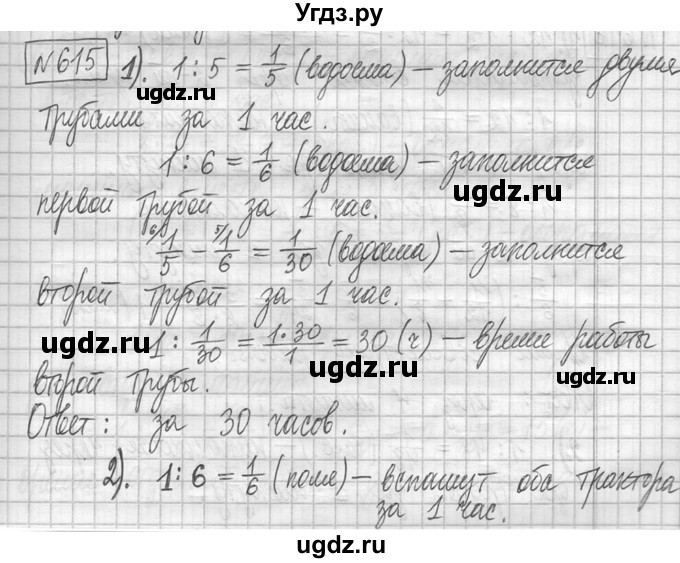 Угдз.ру
№615 1). 1 : 5 = 1/5 (водоема) – заполнится двумя
ugdz.ru ugdz.ru
трубами за 1 час.
1 : 6 = 1/6 (водоема) – заполнится
ugdz.ru
первой трубой за 1 час.
ugdz.ru
⁶⁾1/5 – ⁵⁾1/6 = 1/30 (водоема) – заполнится
второй трубой за 1 час.
ugdz.ru
1 : 1/30 = 1·30/1 = 30 (ч) – время работы
ugdz.ru ugdz.ru
второй трубы.
ugdz.ru
Ответ: за 30 часов.
2). 1 : 6 = 1/6 (поля) – вспашут оба трактора
ugdz.ru
за 1 час.
ugdz.ru